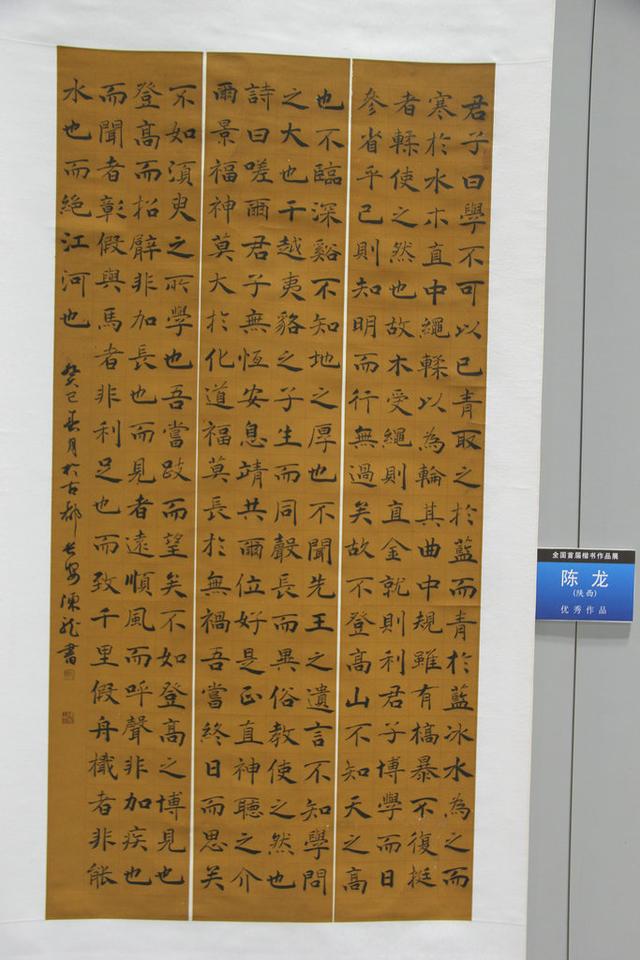 君子曰學不可以已青取之於藍而青於藍冰水為之而
寒於水木直中繩輮以為輪其曲中規雖有槁暴不復挺
者輮使之然也故木受繩則直金就則利君子博學而日
參省乎己則知明而行無過矣故不登高山不知天之高
也不臨深谿不知地之厚也不聞先王之遺言不知學問
之大也干越夷貉之子生而同聲長而異俗教使之然也
詩曰嗟爾君子無恆安息靖共爾位好是正直神聽之介
爾景福神莫大於化道福莫長於無禍吾嘗終日而思矣
不如須臾之所學也吾嘗跂而望矣不如登高之博見也
登高而招臂非加長也而見者遠順風而呼聲非加疾也
而聞者彰假與馬者非利足也而致千里假舟檝者非能
水也而絕江河也
癸巳春月於古都長安陳龍書
全国首届楷书作品展
陈龙
(陕西)
优秀作品